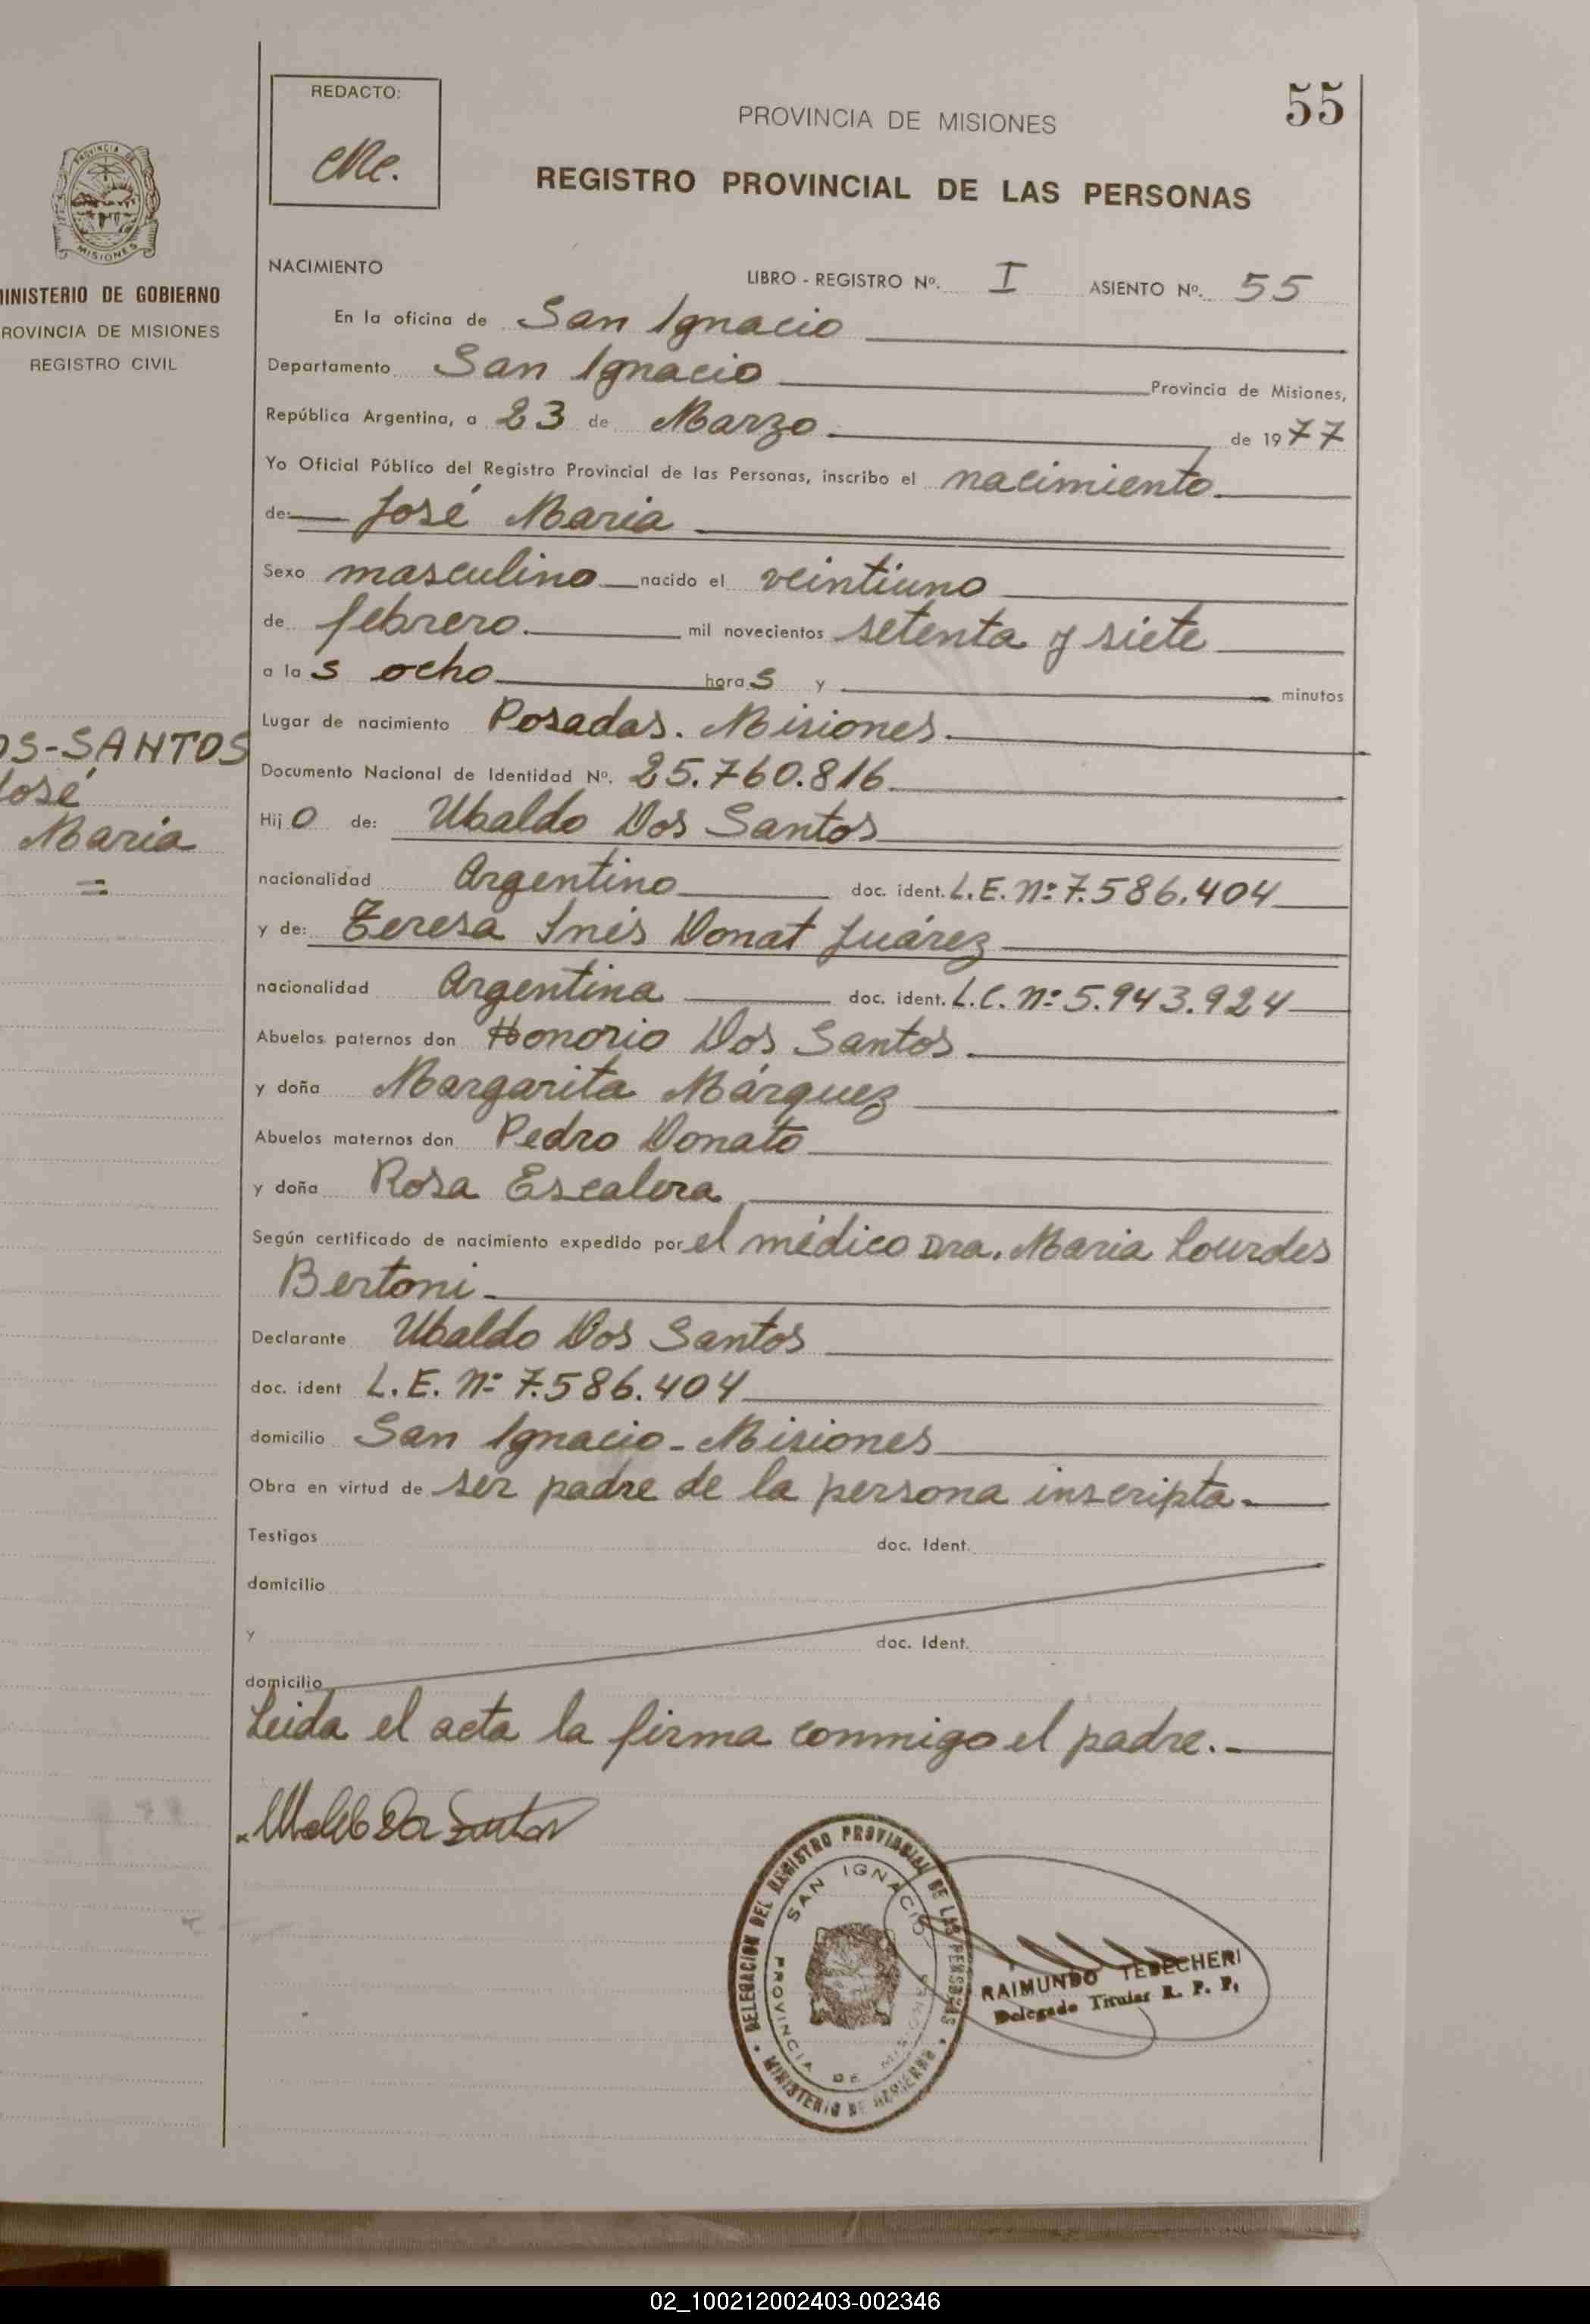 REDACTO:
PROVINCIA DE MISIONES
55
REGISTRO PROVINCIAL DE LAS PERSONAS
PROVINCIA DE
MISIONES
INISTERIO DE GOBIERNO
ROVINCIA DE MISIONES
REGISTRO CIVIL
OS-SANTOS
José
Maria
=
NACIMIENTO LIBRO - REGISTRO Nº. I ASIENTO Nº. 55
En la oficina de San Ignacio
Departamento San Ignacio Provincia de Misiones,
República Argentina, a 23 de Marzo de 1977
Yo Oficial Público del Registro Provincial de las Personas, inscribo el nacimiento
de: José Maria
Sexo masculino nacido el veintiuno
de febrero. mil novecientos setenta y siete
a las ocho horas y minutos
Lugar de nacimiento Posadas. Misiones.
Documento Nacional de Identidad Nº. 25.760.816.
Hijo de: Ubaldo Dos Santos
nacionalidad Argentino doc. ident. L.E. nº 7.586.404
y de: Teresa Inés Donat Juárez
nacionalidad Argentina doc. ident. L.C. nº 5.943.924
Abuelos paternos don Honorio Dos Santos.
y doña Margarita Márquez
Abuelos maternos don Pedro Donato
y doña Rosa Escalera
Según certificado de nacimiento expedido por el médico Dra. Maria Lourdes
Bertoni.
Declarante Ubaldo Dos Santos
doc. ident L.E. nº 7.586.404
domicilio San Ignacio - Misiones
Obra en virtud de ser padre de la persona inscripta.
Testigos doc. Ident.
domicilio
y doc. Ident.
domicilio
Leida el acta la firma conmigo el padre.
DELEGACION DEL REGISTRO PROVINCIAL DE LAS PERSONAS
SAN IGNACIO
PROVINCIA DE MISIONES
MINISTERIO DE GOBIERNO
RAIMUNDO TEBECHERI
Delegado Titular R. P. P.
02_100212002403-002346